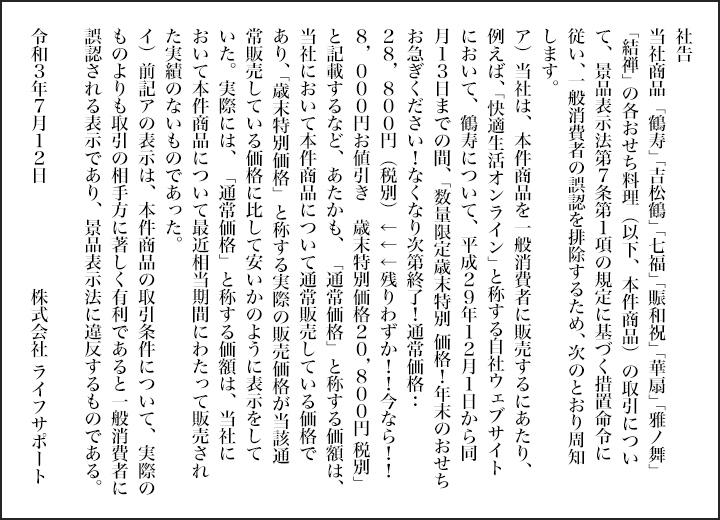 社告
当社商品 「鶴寿」「吉松鶴」「七福」「賑和祝」「華扇」「雅ノ舞」
「結禅」の各おせち料理（以下、本件商品）の取引につい
て、景品表示法第７条第１項の規定に基づく措置命令に
従い、一般消費者の誤認を排除するため、次のとおり周知
します。
ア）当社は、本件商品を一般消費者に販売するにあたり、
例えば、「快適生活オンライン」と称する自社ウェブサイト
において、鶴寿について、平成２９年１２月１日から同
月１３日までの間、「数量限定歳末特別 価格！年末のおせち
お急ぎください！なくなり次第終了！通常価格：
２８，８００円（税別）←←←残りわずか！！今なら！！
８，０００円お値引き 歳末特別価格２０，８００円（税別）」
と記載するなど、あたかも、「通常価格」と称する価額は、
当社において本件商品について通常販売している価格で
あり、「歳末特別価格」と称する実際の販売価格が当該通
常販売している価格に比して安いかのように表示をして
いた。実際には、「通常価格」と称する価額は、当社に
おいて本件商品について最近相当期間にわたって販売され
た実績のないものであった。
イ）前記アの表示は、本件商品の取引条件について、実際の
ものよりも取引の相手方に著しく有利であると一般消費者に
誤認される表示であり、景品表示法に違反するものである。
令和３年７月１２日 株式会社 ライフサポート